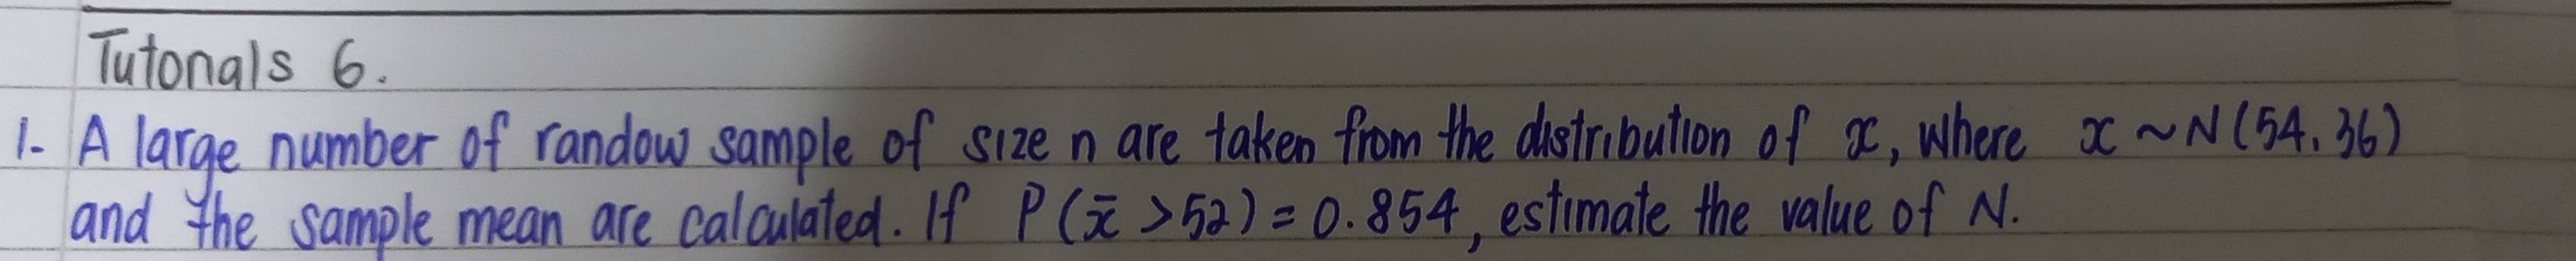 Tutorials 6.
1. A large number of randow sample of size n are taken from the distribution of x, where x ~ N (54, 36)
and the sample mean are calculated. If P (x̄ > 52) = 0.854, estimate the value of N.